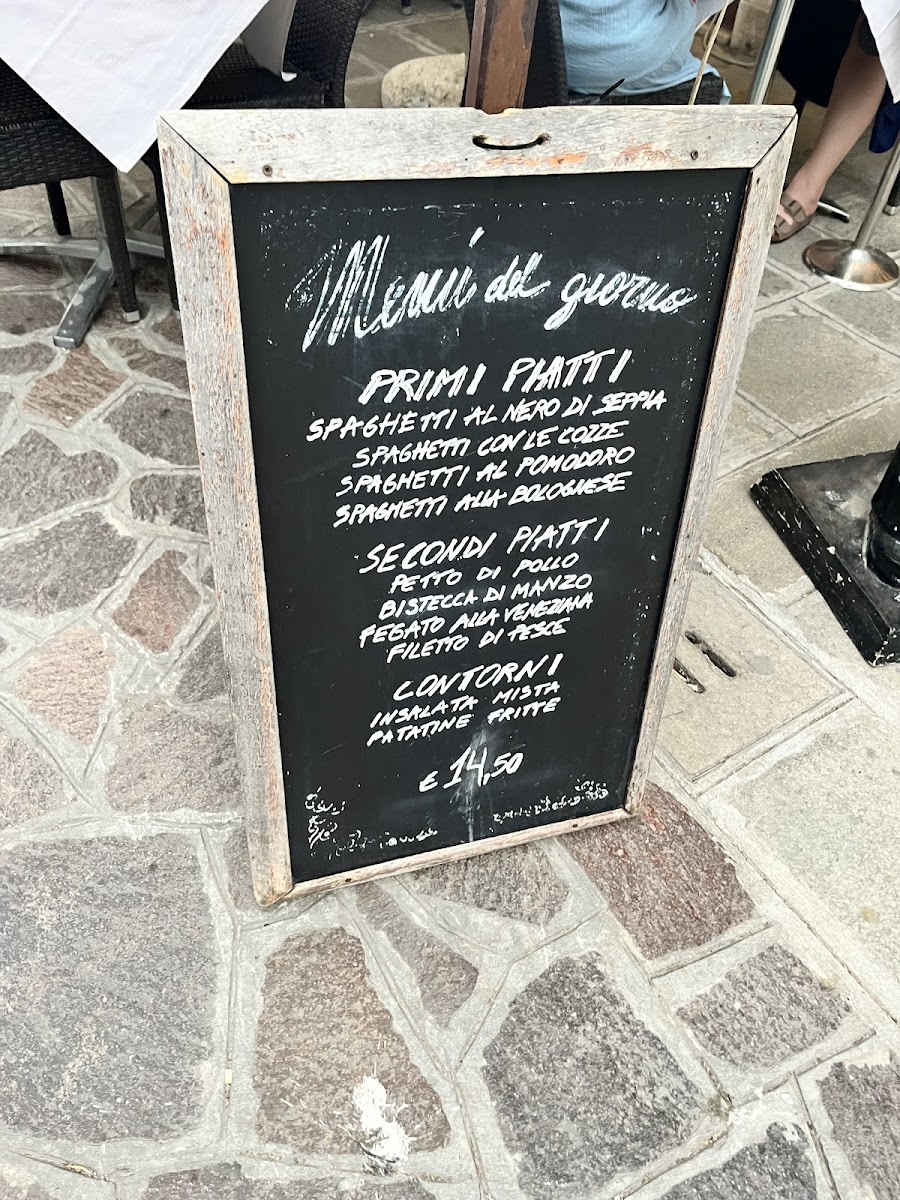 Menú del giorno
PRIMI PIATTI
SPAGHETTI AL NERO DI SEPPIA
SPAGHETTI CON LE COZZE
SPAGHETTI AL POMODORO
SPAGHETTI ALLA BOLOGNESE
SECONDI PIATTI
PETTO DI POLLO
BISTECCA DI MANZO
FEGATO ALLA VENEZIANA
FILETTO DI PESCE
CONTORNI
INSALATA MISTA
PATATINE FRITTE
€ 14,50